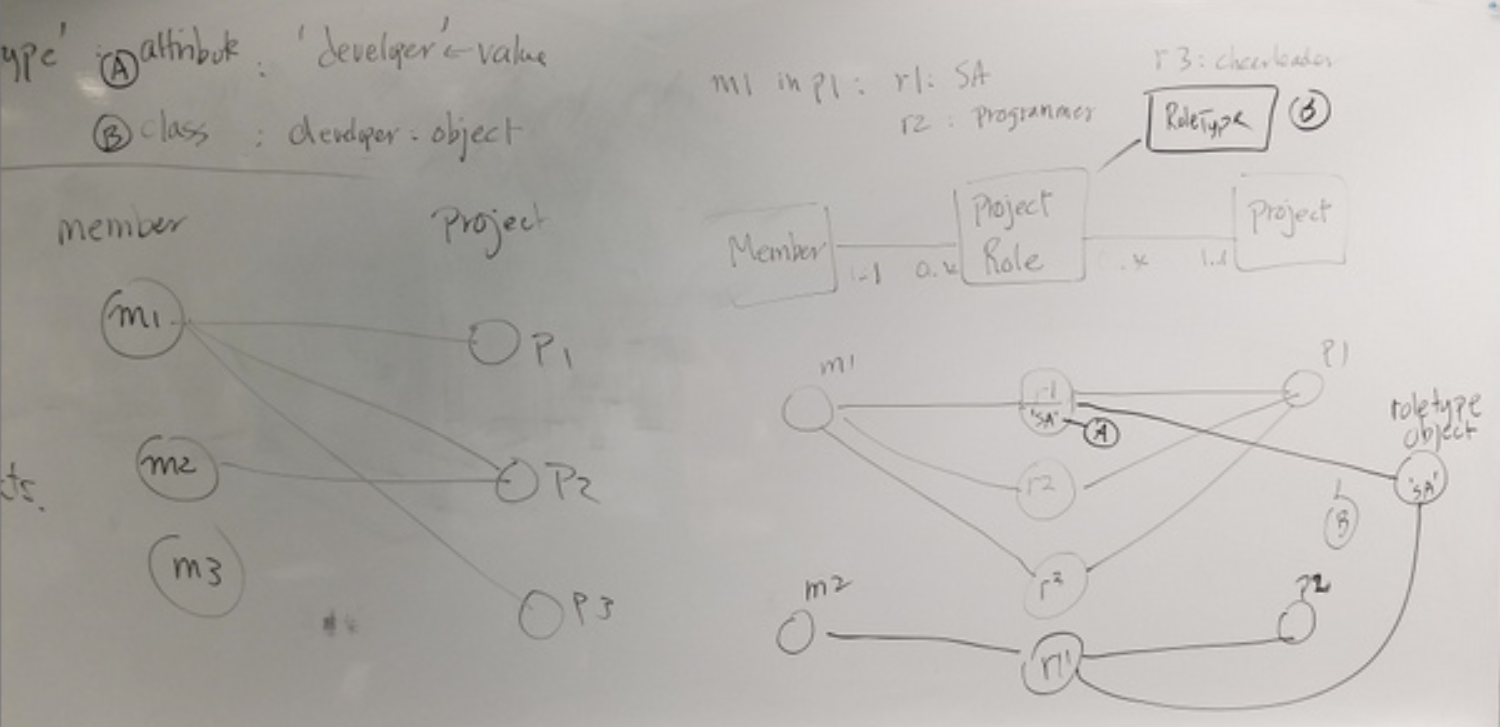 ype' : Ⓐ attribute : 'developer' ← value
Ⓑ class : developer : object
member Project
m1
P1
m2
P2
m3
P3
ts.
m1 in p1 : r1: SA
r2 : programmer
r3 : cheerleader
RoleType Ⓑ
Member
1-1
0..*
Project
Role
..*
1..1
Project
m1
r1
'SA'
Ⓐ
P1
roletype
object
'SA'
Ⓑ
r2
r3
m2
r1'
P2